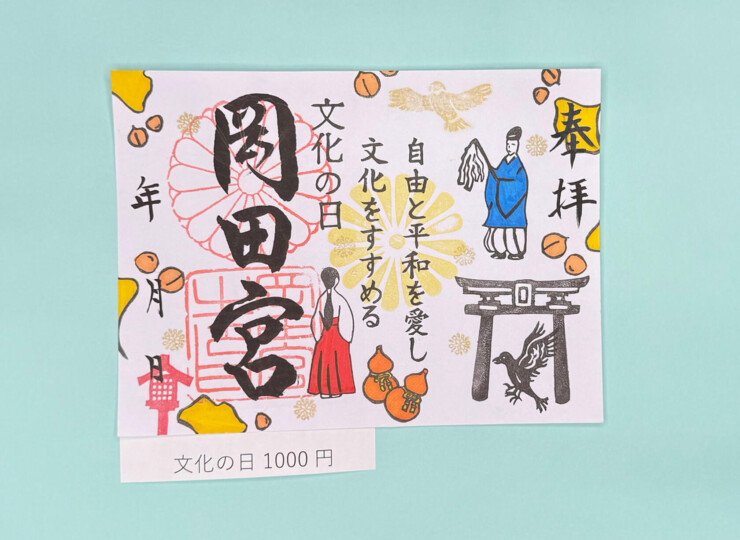 奉拝
自由と平和を愛し
文化をすすめる
文化の日
岡田宮
年
月
日
文化の日 1000 円